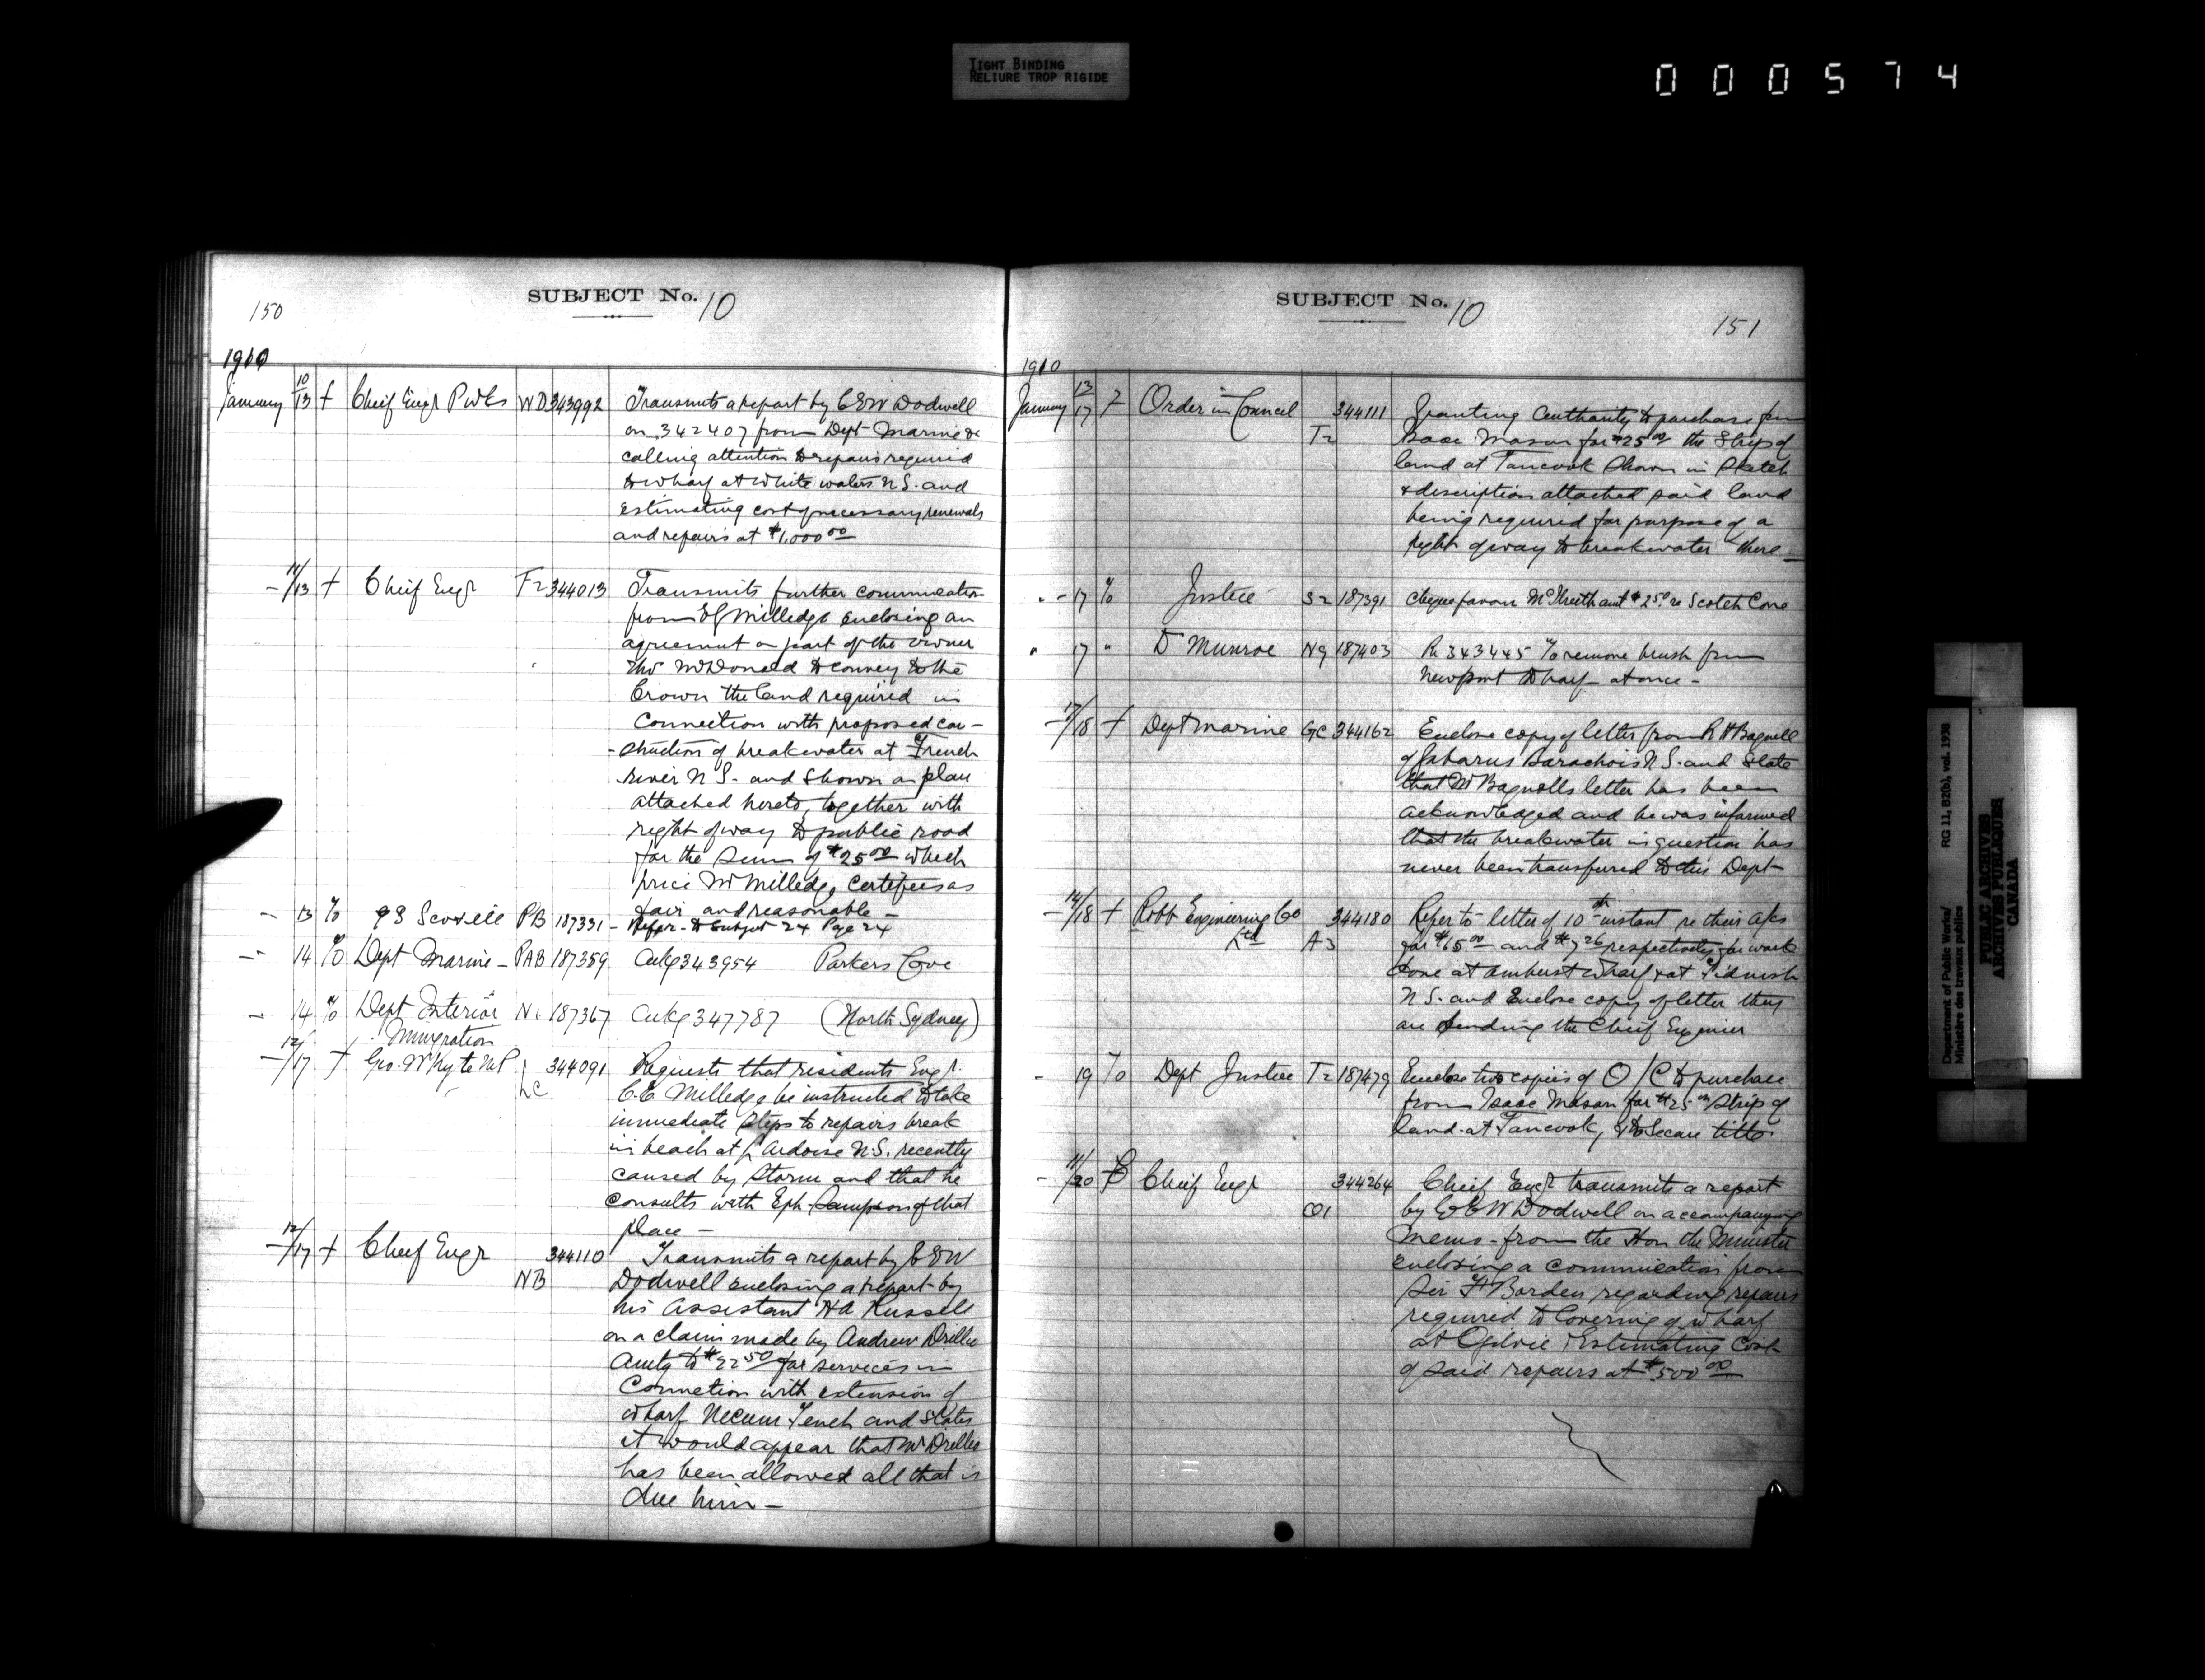 TIGHT BINDING
RELIURE TROP RIGIDE
000574
150
SUBJECT No. 10
1910
January 10/13 f Chief Engr PWks WD 343992 Transmits a report by C E W Dodwell
on 342407 from Dept Marine &c
calling attention to repairs required
to wharf at White waters N S. and
Estimating cost of necessary renewals
and repairs at $1,000.00
- 11/13 f Chief Engr F2 344013 Transmits further communication
from Milledge enclosing an
agreement on part of the owner
McDonald to convey to the
Crown the land required in
Connection with proposed con-
-struction of breakwater at French
river N S. and shown on plan
attached hereto, together with
right of way to public road
for the sum of $25.00 which
price Mr Milledge Certifies as
fair and reasonable -
- 13 To Scovill PB 187331 - Refer to Subject 24 Page 24
- 14 To Dept Marine - PAB 187359 Ackg 343954 Parkers Cove
- 14 To Dept Interior N. 187367 Ackg 347787 (North Sydney)
Immigration
- 12/17 f Geo. W Kyte M P LC 344091 Requests that residents Engr.
C. E Milledge be instructed to take
immediate steps to repairs break
in beach at L Ardoise N.S. recently
caused by storm and that he
consults with Eph. Sampson of that
place -
- 12/17 f Chief Engr NB 344110 Transmits a report by C E W
Dodwell enclosing a report by
his Assistant H A Russell
on a claim made by Andrew Drillio
Amtg to $22.50 for services in
Connetion with extension of
wharf Necum Teuch and States
it would appear that Mr Drillio
has been allowed all that is
due him -
SUBJECT No. 10
151
1910
January 13/17 f Order in Council T2 344111 Granting Authority to purchase from
Isaac Mason for $25.00 the Strip of
land at Tancook shown in Sketch
& description attached said land
being required for purpose of a
right of way to breakwater there -
" - 17 To Justice S2 187391 cheque favour amt $2.50 re Scotch Cove
" 17 " D Munroe N9 187403 Re 343445 To remove brush from
Newport Wharf at once -
- 17/18 f Dept Marine GC 344162 Enclose copy of letter from R H Bagnell
of Gabarus Barachois N.S. and State
that Mr Bagnells letter has been
acknowledged and he was informed
that the breakwater in question has
never been transfured to this Dept
- 14/18 f Robb Engineering Co Ltd A3 344180 Refer to letter of 10th instant re their a/cs
for $65.00 and $7.26 respectively for work
done at Amherst Wharf & at Tidnish
N S. and Enclose copy of letter they
are sending the Chief Engenier
- 19 To Dept Justice T2 187479 Enclose two copies of O/C to purchase
from Isaac Mason for $25.00 Strip of
land at Tancook, & to Secure title
- 11/20 f Chief Engr O1 344264 Chief Engr transmits a report
by C E W Dodwell on accompanying
Memo - from the Hon the Minister
enclosing a communication from
Sir F Borden regarding repairs
required to Covering of wharf
at Ogilvie & Estimating Cost
of said repairs at $500.00
Department of Public Works/ RG 11, B2(b), vol. 1938
Ministère des travaux publics
PUBLIC ARCHIVES
ARCHIVES PUBLIQUES
CANADA